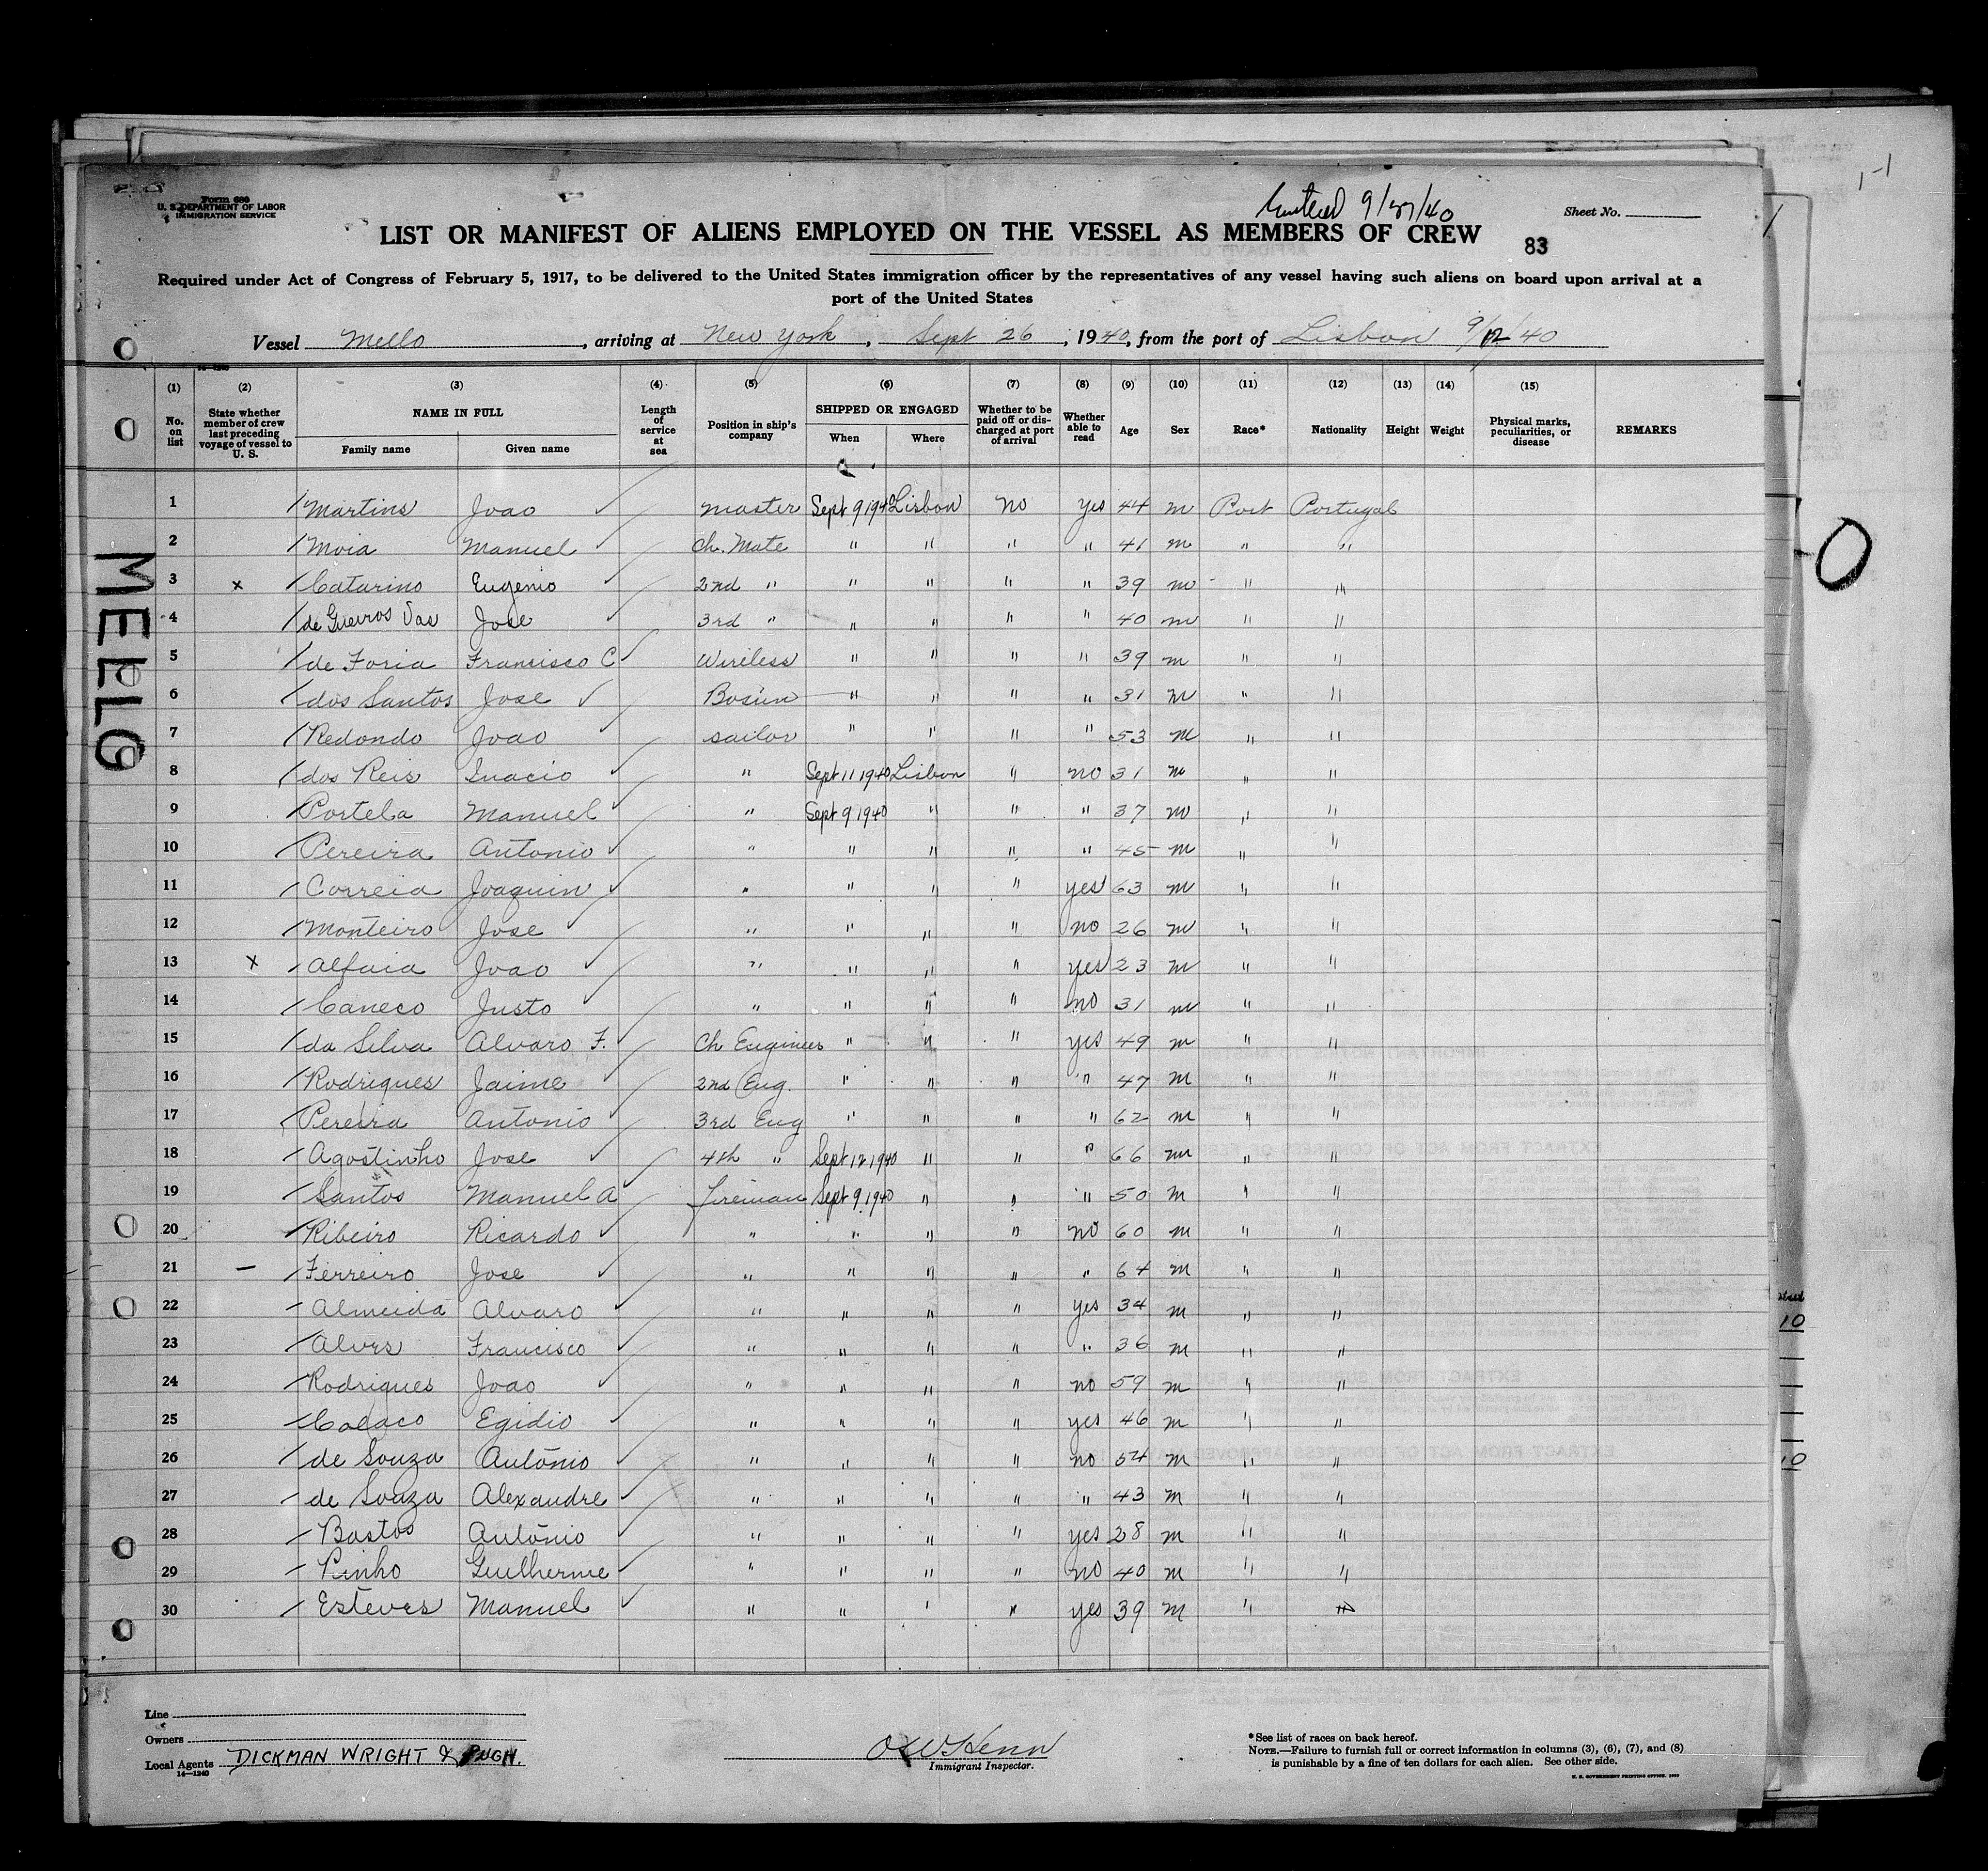 Form 680
U. S. DEPARTMENT OF LABOR
IMMIGRATION SERVICE
Entered 9/27/40
Sheet No.
LIST OR MANIFEST OF ALIENS EMPLOYED ON THE VESSEL AS MEMBERS OF CREW
83
Required under Act of Congress of February 5, 1917, to be delivered to the United States immigration officer by the representatives of any vessel having such aliens on board upon arrival at a
port of the United States
Vessel Mello, arriving at New York, Sept 26, 1940, from the port of Lisbon 9/12/40
(1) (2) (3) (4) (5) (6) (7) (8) (9) (10) (11) (12) (13) (14) (15)
No. on list State whether member of crew last preceding voyage of vessel to U. S. NAME IN FULL Family name Given name Length of service at sea Position in ship's company SHIPPED OR ENGAGED When Where Whether to be paid off or discharged at port of arrival Whether able to read Age Sex Race* Nationality Height Weight Physical marks, peculiarities, or disease REMARKS
1 Martins Joao master Sept 9 1940 Lisbon No yes 44 m Port Portugal
2 Moia Manuel Ch. Mate " " " " 41 m " "
3 x Catarino Eugenio 2nd " " " " " 39 m " "
4 de Gueiros Vas Jose 3rd " " " " " 40 m " "
5 de Foria Francisco C Wireless " " " " 39 m " "
6 dos Santos Jose Bosun " " " " 31 m " "
7 Redondo Joao sailor " " " " 53 m " "
8 dos Reis Inacio " Sept 11 1940 Lisbon " no 31 m " "
9 Portela Manuel " Sept 9 1940 " " " 37 m " "
10 Pereira Antonio " " " " " 45 m " "
11 Correia Joaquin " " " " yes 63 m " "
12 Monteiro Jose " " " " no 26 m " "
13 x Alfaia Joao " " " " yes 23 m " "
14 Caneco Justo " " " " no 31 m " "
15 da Silva Alvaro F. Ch Engineer " " " yes 49 m " "
16 Rodrigues Jaime 2nd Eng. " " " " 47 m " "
17 Pereira Antonio 3rd Eng " " " " 62 m " "
18 Agostinho Jose 4th " Sept 12 1940 " " " 66 m " "
19 Santos Manuel A Fireman Sept 9 1940 " " " 50 m " "
20 Ribeiro Ricardo " " " " no 60 m " "
21 - Ferreiro Jose " " " " " 64 m " "
22 Almeida Alvaro " " " " yes 34 m " "
23 Alves Francisco " " " " " 36 m " "
24 Rodrigues Joao " " " " no 59 m " "
25 Colaco Egidio " " " " yes 46 m " "
26 de Souza António " " " " no 54 m " "
27 de Souza Alexandre " " " " " 43 m " "
28 Bastos António " " " " yes 28 m " "
29 Pinho Guilherme " " " " no 40 m " "
30 Esteves Manuel " " " " yes 39 m " "
MELLO
Line
Owners
Local Agents DICKMAN WRIGHT & PUGH.
14—1240
Immigrant Inspector.
*See list of races on back hereof.
NOTE.—Failure to furnish full or correct information in columns (3), (6), (7), and (8)
is punishable by a fine of ten dollars for each alien. See other side.
10
10